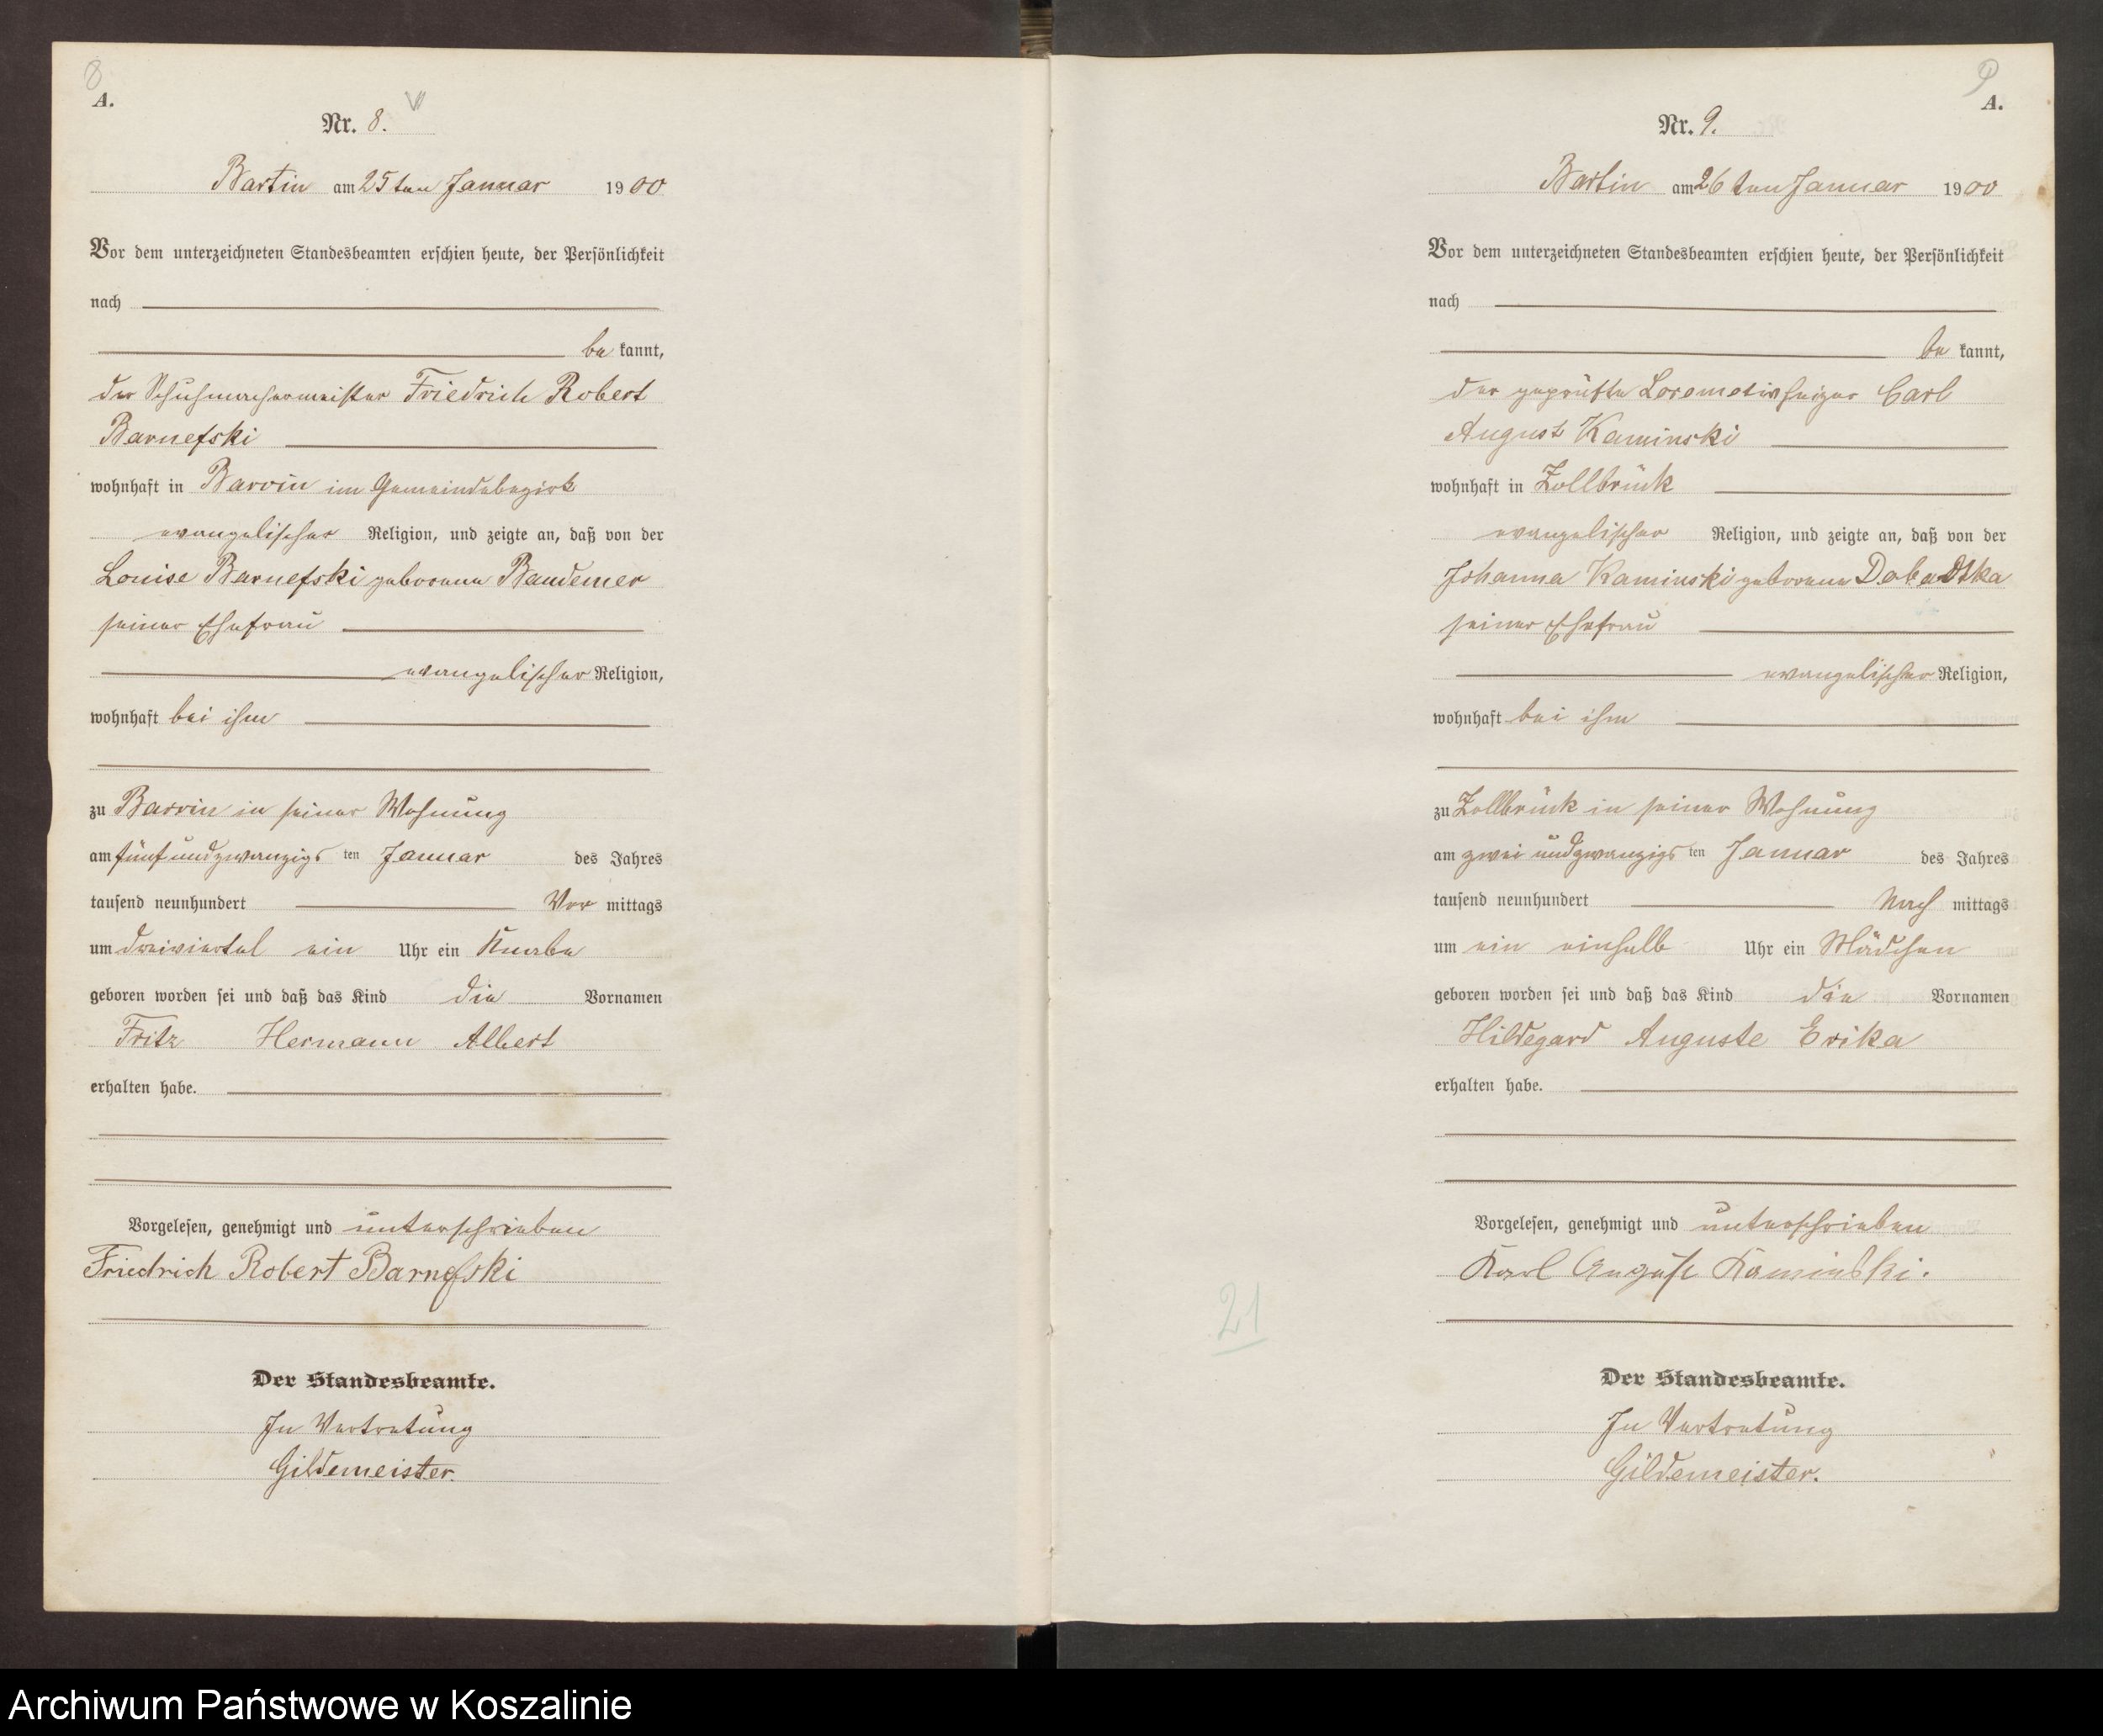 8
A.
Nr. 8.
Bartin am 25ten Januar 1900
Vor dem unterzeichneten Standesbeamten erschien heute, der Persönlichkeit
nach
be kannt,
der Schuhmachermeister Friedrich Robert
Barnefski
wohnhaft in Barvin im Gemeindebezirk
evangelischer Religion, und zeigte an, daß von der
Louise Barnefski geborene Bandemer
seiner Ehefrau
evangelischer Religion,
wohnhaft bei ihm
zu Barvin in seiner Wohnung
am fünf und zwanzigs ten Januar des Jahres
tausend neunhundert Vor mittags
um dreiviertel ein Uhr ein Knabe
geboren worden sei und daß das Kind die Vornamen
Fritz Hermann Albert
erhalten habe.
Vorgelesen, genehmigt und unterschrieben
Friedrich Robert Barnefski
Der Standesbeamte.
In Vertretung
Gildemeister.
9
A.
Nr. 9.
Bartin am 26ten Januar 1900
Vor dem unterzeichneten Standesbeamten erschien heute, der Persönlichkeit
nach
be kannt,
der geprüfte Locomotivheizer Carl
August Kaminski
wohnhaft in Zollbrück
evangelischer Religion, und zeigte an, daß von der
Johanna Kaminski geborene
seiner Ehefrau
evangelischer Religion,
wohnhaft bei ihm
zu Zollbrück in seiner Wohnung
am zwei und zwanzigs ten Januar des Jahres
tausend neunhundert Nach mittags
um ein einhalb Uhr ein Mädchen
geboren worden sei und daß das Kind die Vornamen
Hildegard Auguste Erika
erhalten habe.
Vorgelesen, genehmigt und unterschrieben
Karl August Kaminski.
21
Der Standesbeamte.
In Vertretung
Gildemeister.
Archiwum Państwowe w Koszalinie